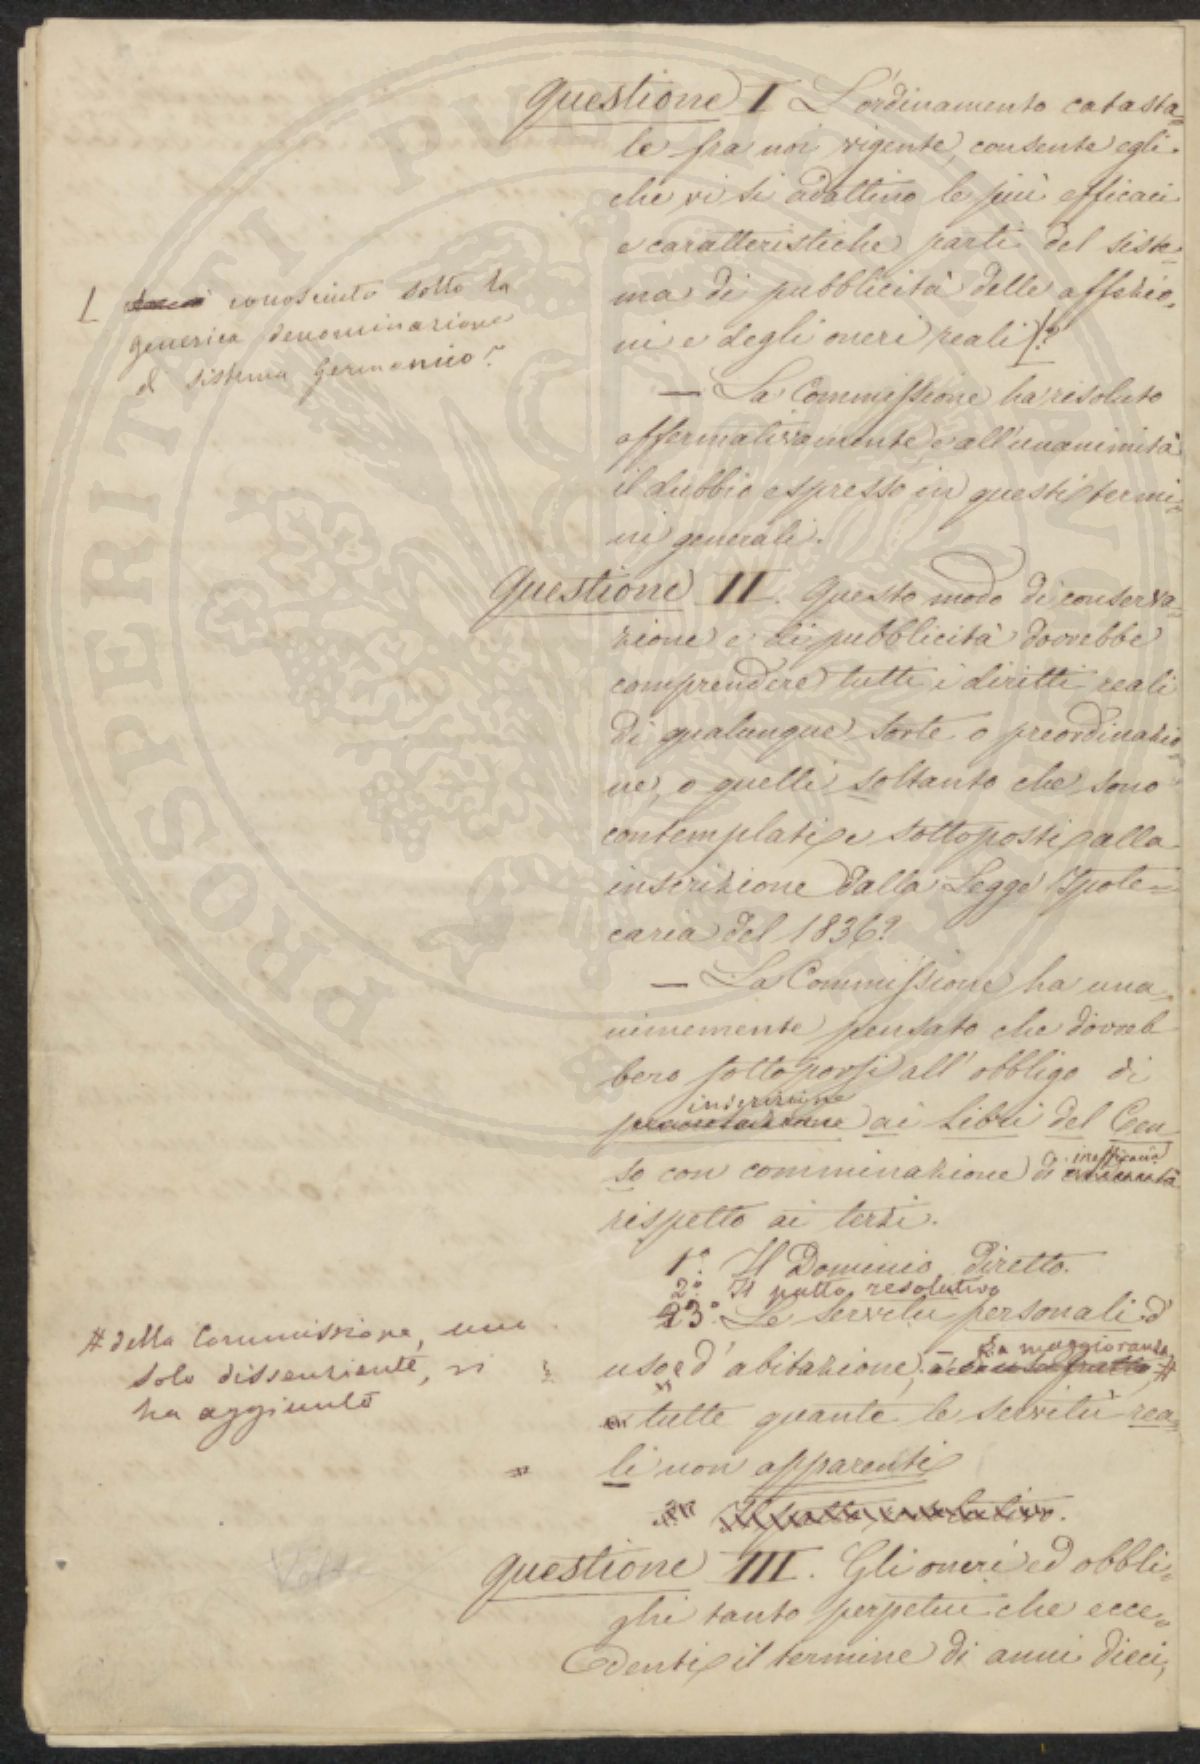 Questione I L'ordinamento catasta=
le fra noi vigente, consente egli
che vi si adattino le più efficaci
e caratteristiche parti del siste=
ma di pubblicità delle affezio=
ni e degli oneri reali?
L conosciuto sotto la
generica denominazione
di sistema Germanico?
— La Commissione ha risoluto
affermativamente, e all'unanimità
il dubbio espresso in questi termi=
ni generali.
Questione II. Questo modo di conserva=
zione e di pubblicità dovrebbe
comprendere tutti i diritti reali
di qualunque sorte o preordinazio=
ne, o quelli soltanto che sono
contemplati e sottoposti alla
inscrizione dalla Legge Ipote=
caria del 1836?
— La Commissione ha una=
nimemente pensato che dovreb
bero sottoporsi all'obbligo di
inscrizione
ai Libri del Cen
so con comminazione di inefficacia
rispetto ai terzi.
1°. Il Dominio diretto.
2°. Il patto resolutivo
3°. Le servitù personali d'
uso e d'abitazione, La maggioranza #
# della Commissione, uno
solo dissenziente, vi
ha aggiunto
tutte quante le servitù rea=
li non apparenti
Il patto resolutivo.
Questione III. Gli oneri ed obbli=
ghi tanto perpetui che ecce=
denti il termine di anni dieci,
PROSPERITATI PUBLICAE AUGENDAE